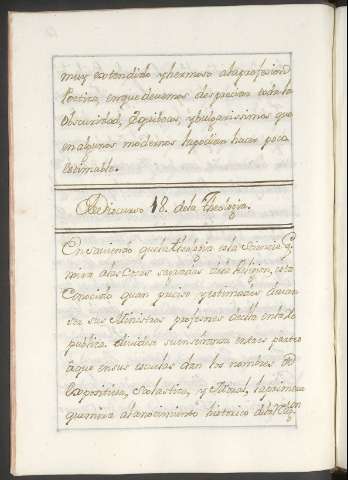 muy extendido y hermoso ala profesion
Poetica, en que devemos despreciar toda la
obscuridad, Equibocas, y bulgarissimos que
en algunos modernos la podian hacer poco
estimable.
Discurso 18. dela Theologia.
En saviendo que la theologia es la Sciencia q.
mira alas Cosas sagradas dela Religion, esta
Conocido quan preciso y estimados devan
ser sus Ministros profesores della entodo
publica. dividese su enseñanza en tres partes
aque en sus escuelas dan los nombres de
Expositiva, Scolastica, y Moral, la primera
que mira al conocimiento historico dela Relig.on